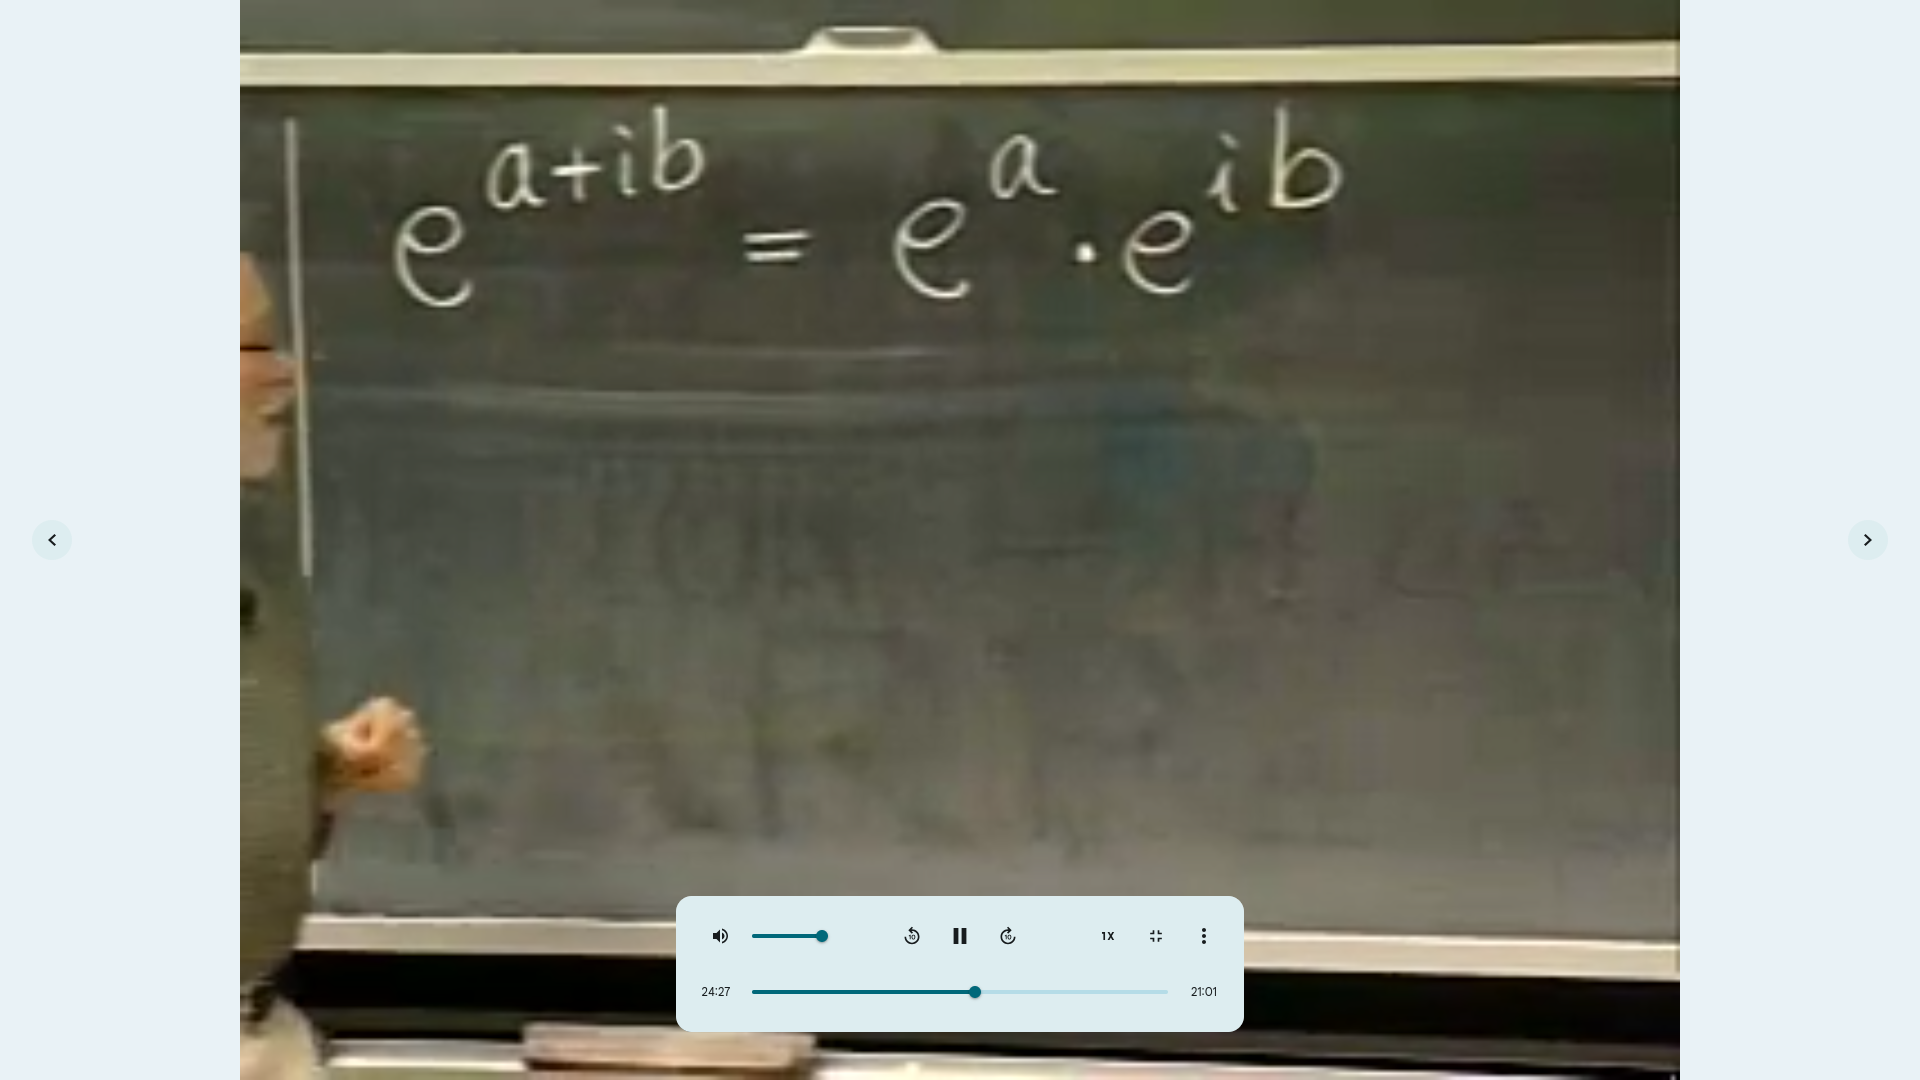 e^{a+ib} = e^a · e^{ib}
10
10
1X
24:27
21:01